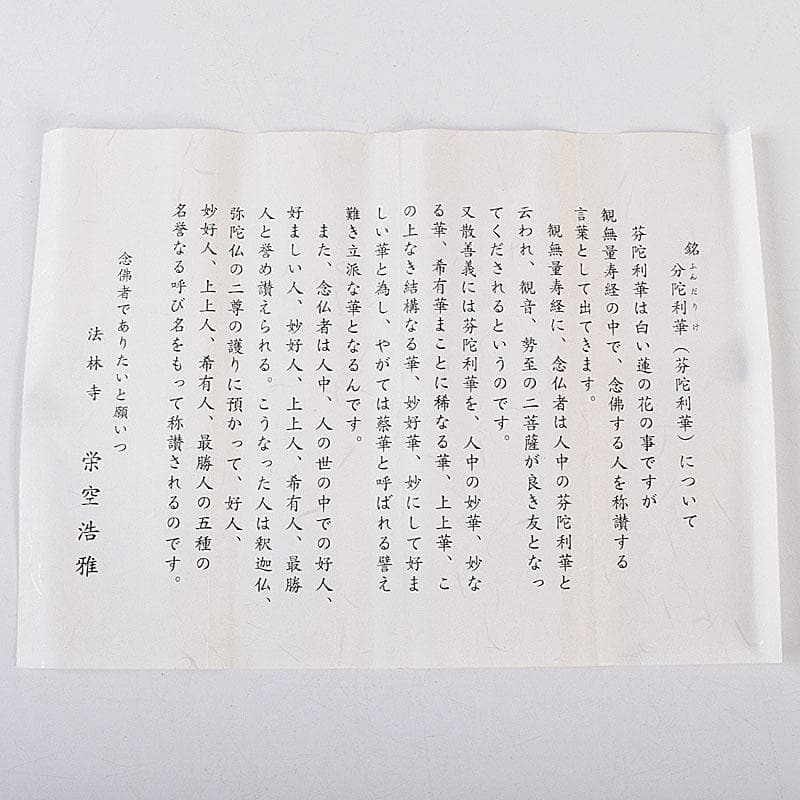 銘 分陀利華（芬陀利華）について
ふんだりけ
芬陀利華は白い蓮の花の事ですが
観無量寿経の中で、念佛する人を称讃する
言葉として出てきます。
観無量寿経に、念仏者は人中の芬陀利華と
云われ、観音、勢至の二菩薩が良き友となっ
てくだされるというのです。
又散善義には芬陀利華を、人中の妙華、妙な
る華、希有華まことに稀なる華、上上華、こ
の上なき結構なる華、妙好華、妙にして好ま
しい華と為し、やがては蔡華と呼ばれる譬え
難き立派な華となるんです。
また、念仏者は人中、人の世の中での好人、
好ましい人、妙好人、上上人、希有人、最勝
人と誉め讃えられる。こうなった人は釈迦仏、
弥陀仏の二尊の護りに預かって、好人、
妙好人、上上人、希有人、最勝人の五種の
名誉なる呼び名をもって称讃されるのです。
念佛者でありたいと願いつ
法林寺 栄空浩雅